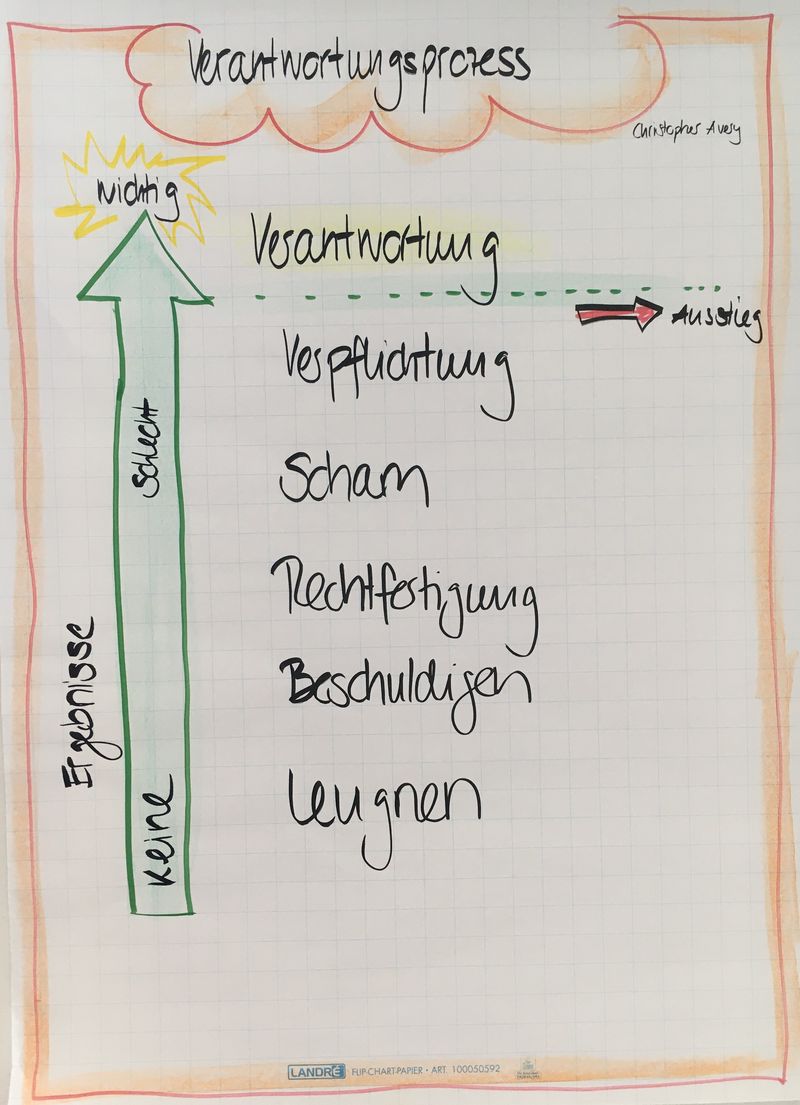 Verantwortungsprozess
Christopher Avery
Wichtig
Verantwortung
Ausstieg
Verpflichtung
Schlecht
Scham
Rechtfertigung
Ergebnisse
Beschuldigen
Leugnen
Keine
LANDRÉ FLIP-CHART-PAPIER • ART. 100050592